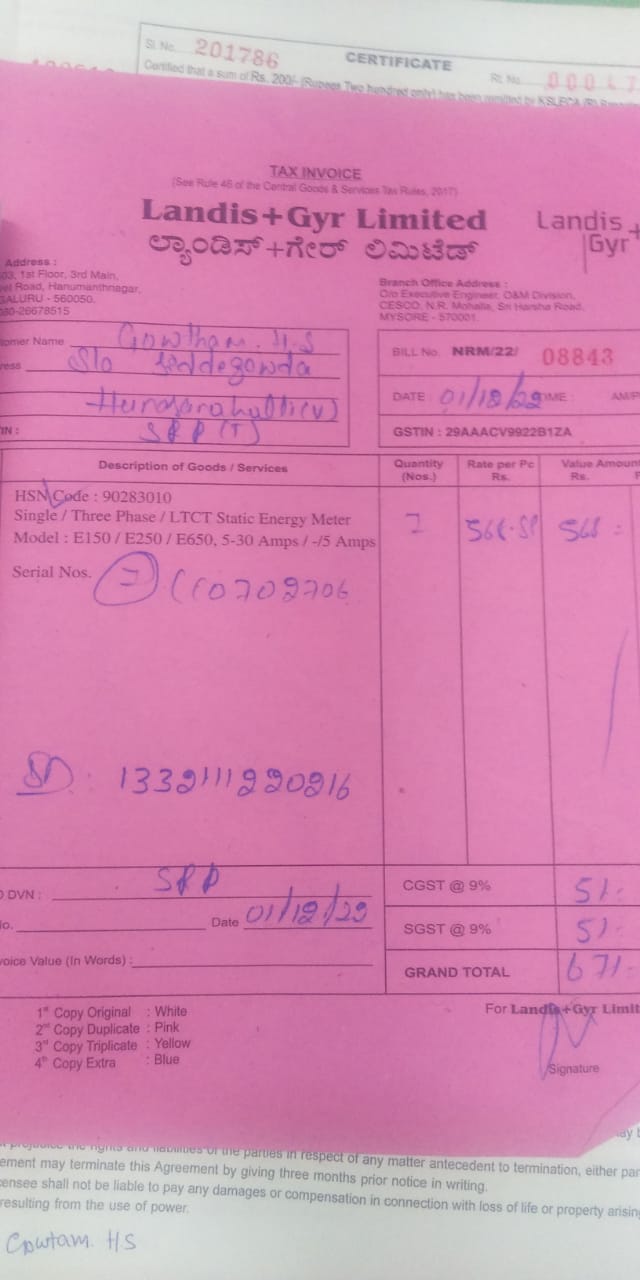 Sl. No. 201786 CERTIFICATE
Certified that a sum of Rs. 200/- (Rupees Two hundred only) has been remitted by KSLECA
TAX INVOICE
(See Rule 46 of the Central Goods & Services Tax Rules, 2017)
Landis+Gyr Limited
Landis+
Gyr
ಲ್ಯಾಂಡಿಸ್+ಗೇರ್ ಲಿಮಿಟೆಡ್
Address :
03, 1st Floor, 3rd Main,
Road, Hanumanthnagar,
GALURU - 560050.
080-26678515
Branch Office Address :
C/o Executive Engineer, O&M Division,
CESCO, N.R. Mohalla, Sri Harsha Road,
MYSORE - 570001.
tomer Name Gowtham. H.S
ress S/o
SRP (T)
BILL No. NRM/22/ 08843
DATE : 01/12/22 TIME : AM/P
GSTIN : 29AAACV9922B1ZA
Description of Goods / Services Quantity (Nos.) Rate per Pc Rs. Value Amount Rs.
HSN Code : 90283010
Single / Three Phase / LTCT Static Energy Meter 1 568
Model : E150 / E250 / E650, 5-30 Amps / -/5 Amps
Serial Nos.
DVN : SRP
CGST @ 9% 51-
o. Date 01/12/22
SGST @ 9% 51-
voice Value (In Words) :
GRAND TOTAL 671-
1st Copy Original : White
2nd Copy Duplicate : Pink
3rd Copy Triplicate : Yellow
4th Copy Extra : Blue
For Landis+Gyr Limit
Signature
the rights and liabilities of the parties in respect of any matter antecedent to termination, either par
ement may terminate this Agreement by giving three months prior notice in writing.
ensee shall not be liable to pay any damages or compensation in connection with loss of life or property arising
resulting from the use of power.
Gowtam. HS